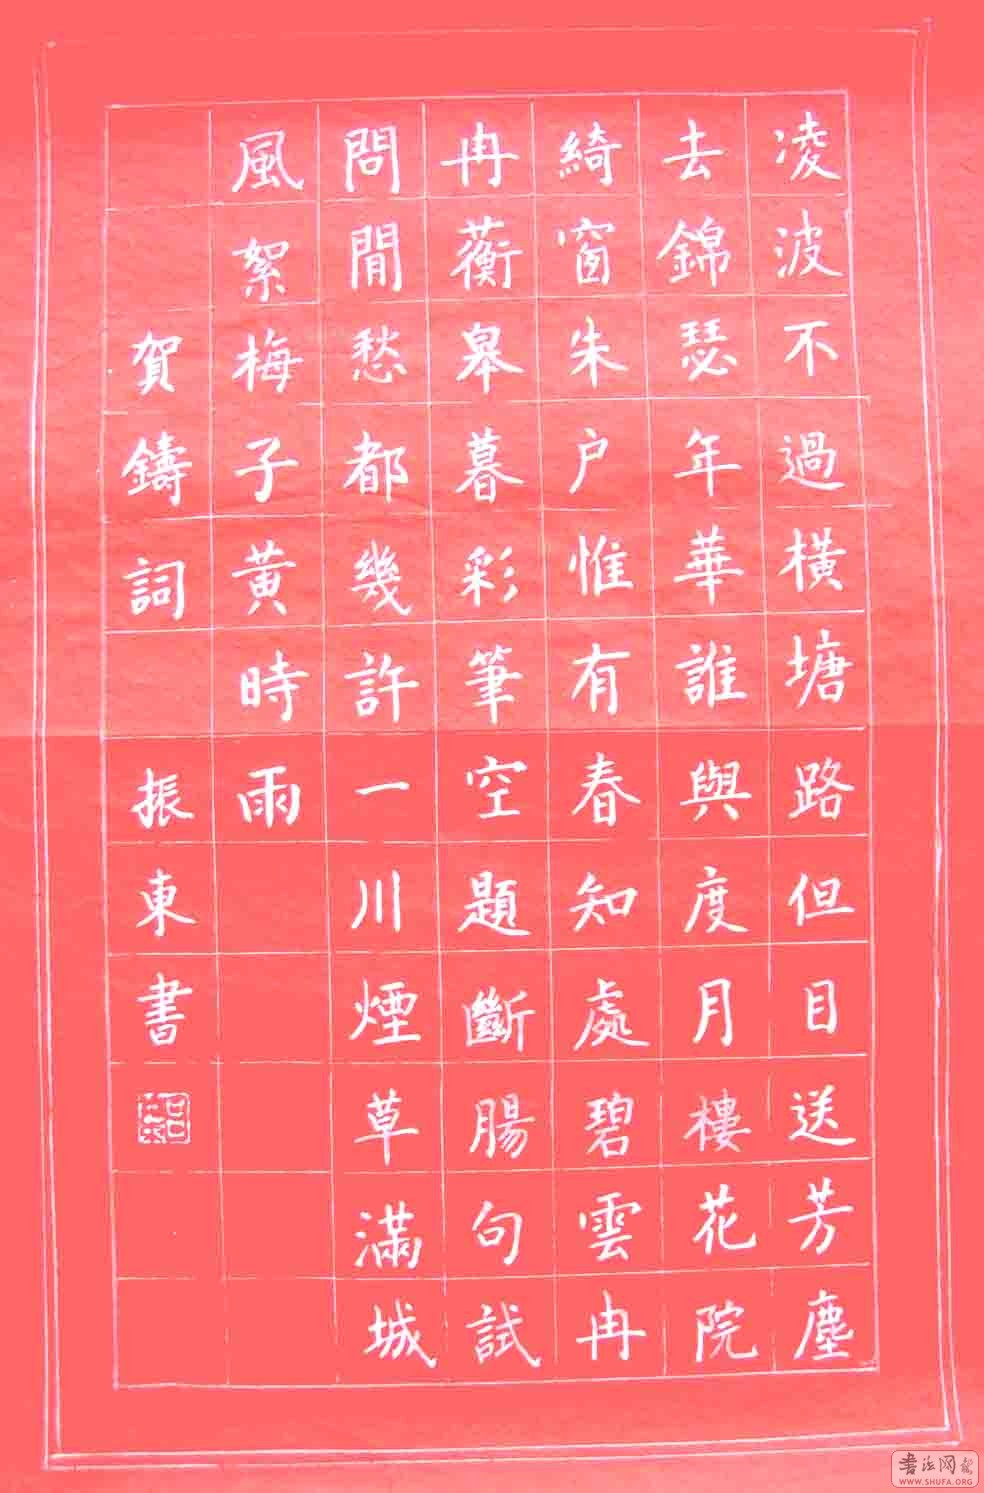 凌波不過橫塘路但目送芳塵
去錦瑟年華誰與度月樓花院
綺窗朱户惟有春知處碧雲冉
冉蘅皋暮彩筆空題斷腸句試
問閒愁都幾許一川煙草滿城
風絮梅子黃時雨
賀鑄詞 振東書
WWW.SHUFA.ORG